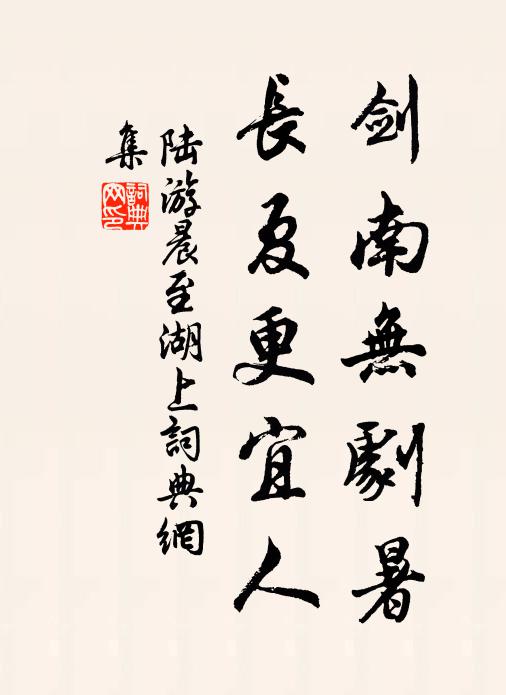 劍南無劇暑
長夏更宜人
陸游晨至湖上詞典網
集
詞典
网印